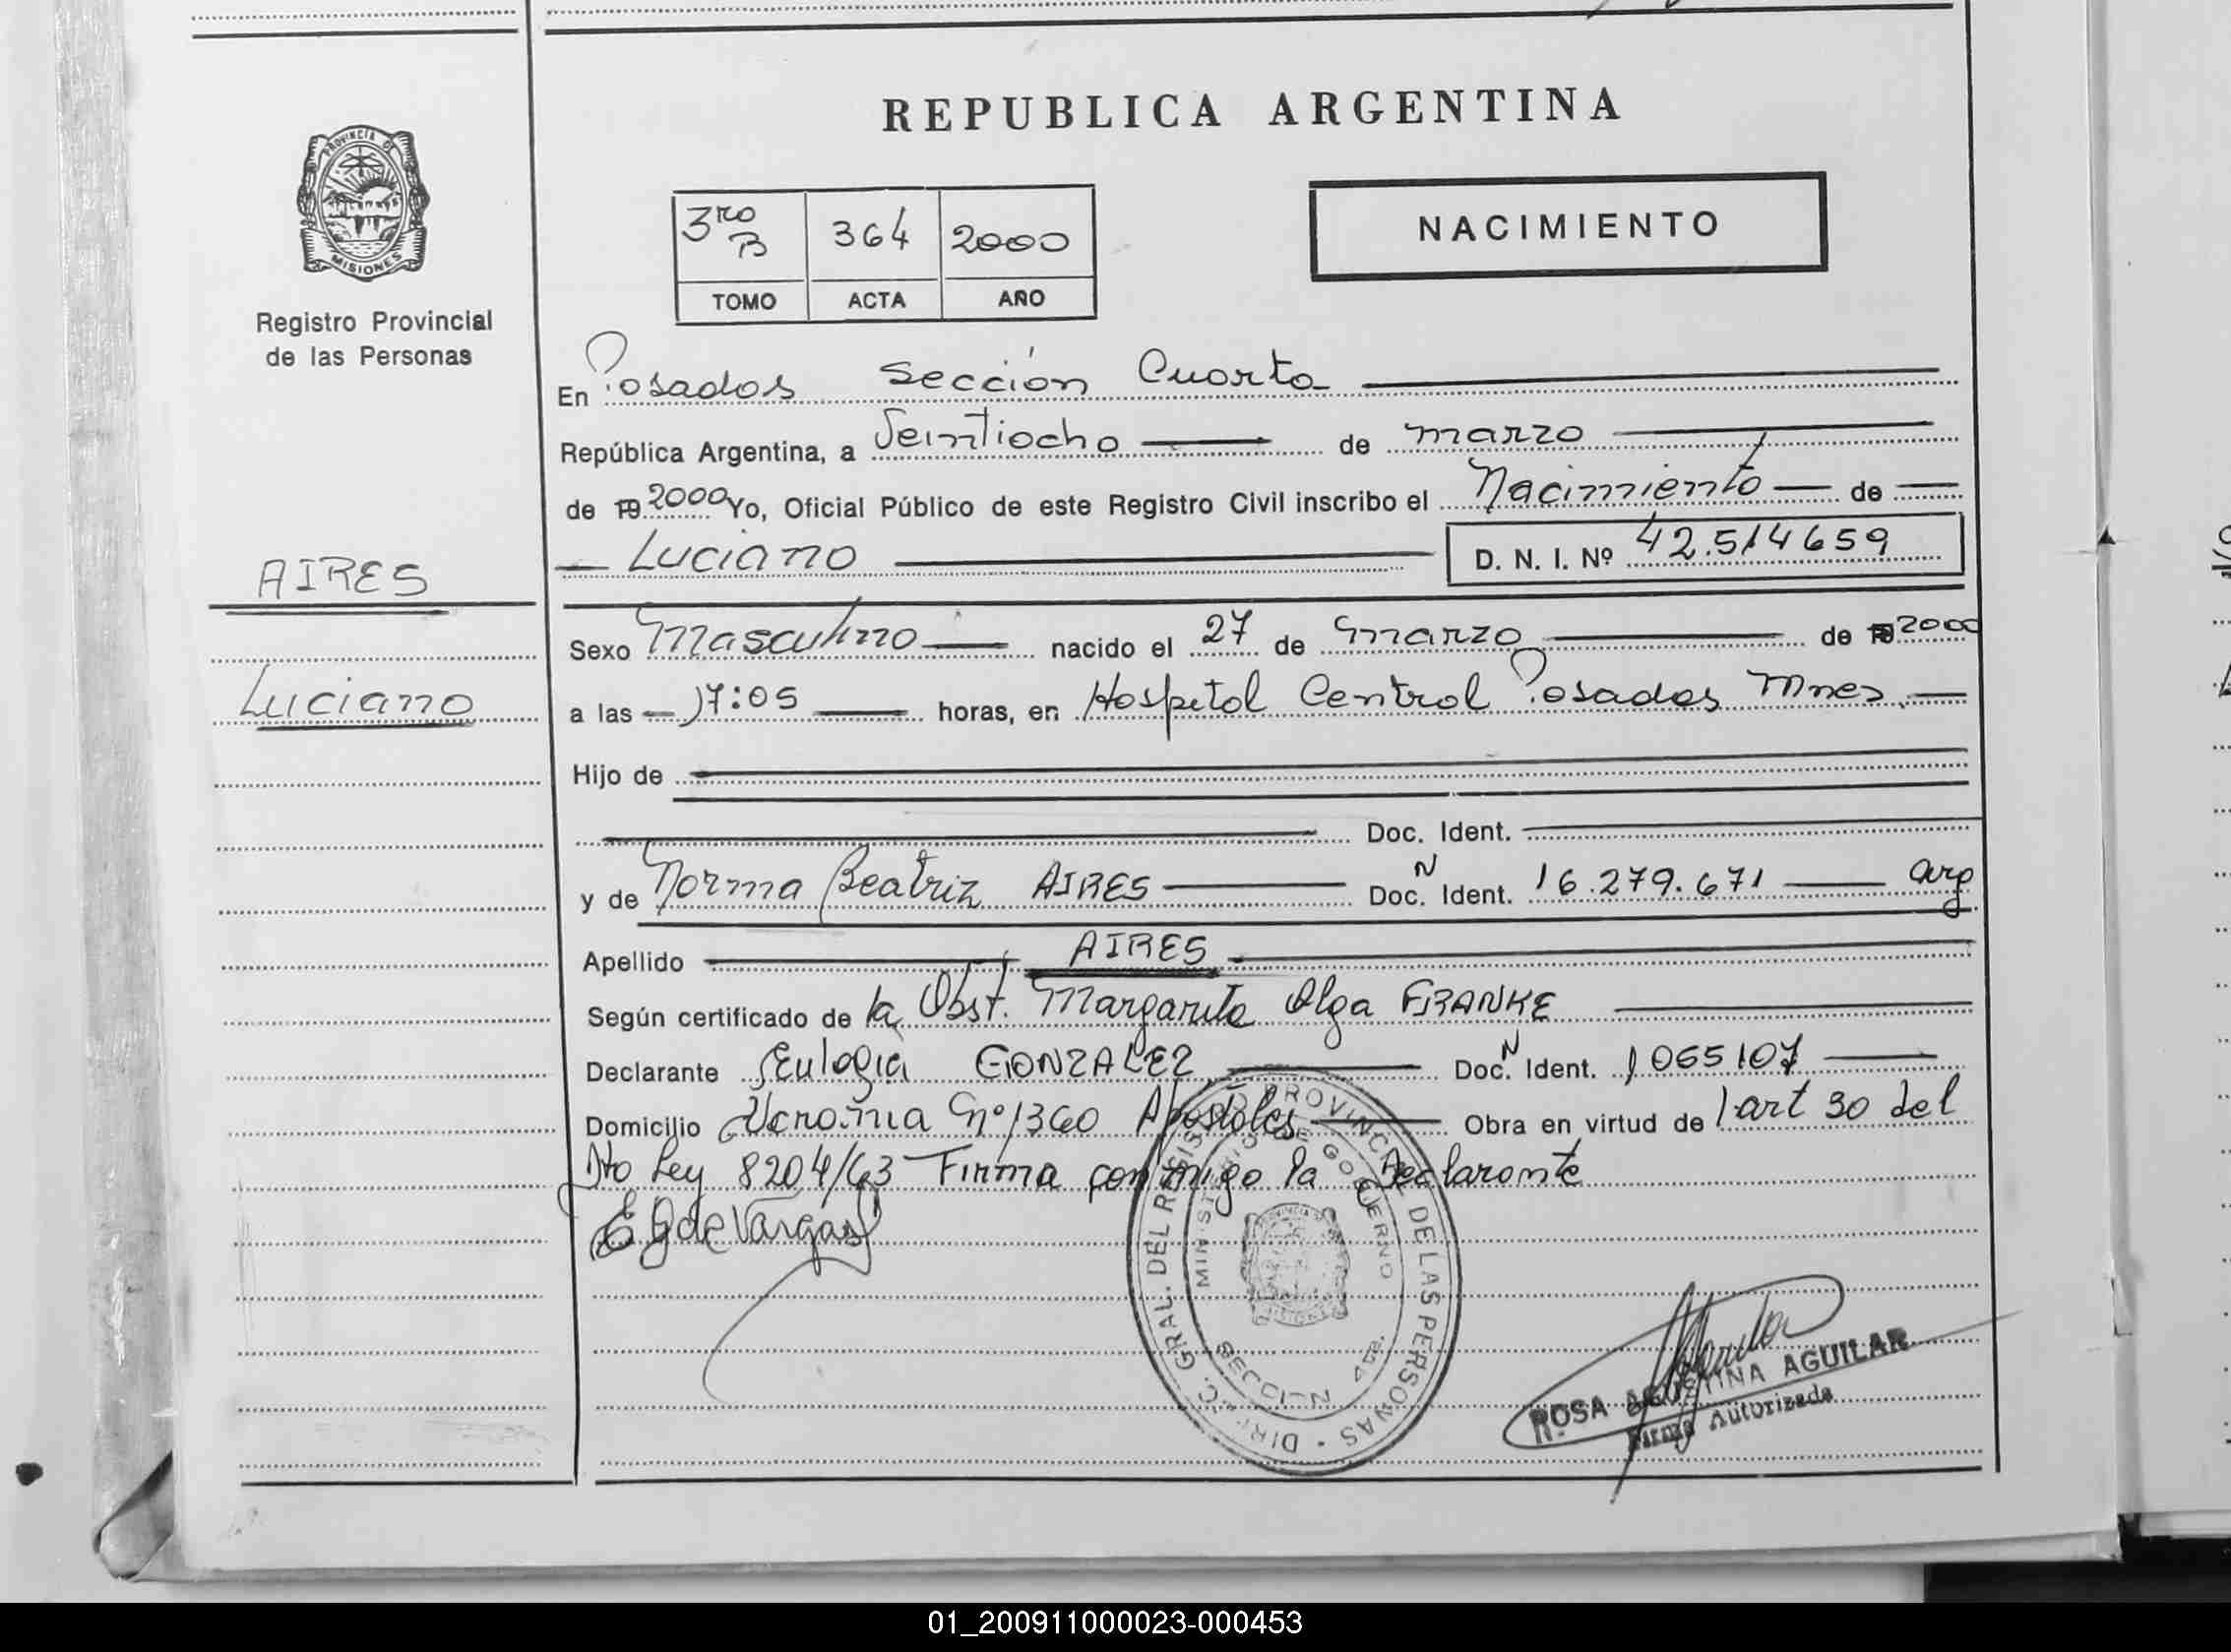 REPUBLICA ARGENTINA
PROVINCIA DE MISIONES
Registro Provincial
de las Personas
NACIMIENTO
3ro B 364 2000
TOMO ACTA AÑO
En Posadas Sección Cuarta
República Argentina, a Veintiocho de marzo
de 19 2000 Yo, Oficial Público de este Registro Civil inscribo el Nacimiento de
Luciano D. N. I. Nº 42.514659
AIRES
Luciano
Sexo Masculino nacido el 27 de marzo de 19 2000
a las 17:05 horas, en Hospital Central Posadas Mnes.
Hijo de
Doc. Ident.
y de Norma Beatriz AIRES Doc. N Ident. 16.279.671 arg
Apellido AIRES
Según certificado de la Obst. Margarita Olga FRANKE
Declarante Eulogia GONZALEZ Doc. N Ident. 1065107
Domicilio Nº 1360 Apóstoles Obra en virtud de l art 30 del
Dto Ley 8204/63 Firma conmigo la Declarante
E G de Vargas
DIREC. GRAL. DEL REGISTRO PROVINCIAL DE LAS PERSONAS
MINISTERIO DE GOBIERNO
SECCION 4ta.
ROSA AGUSTINA AGUILAR
Firma Autorizada
01_200911000023-000453